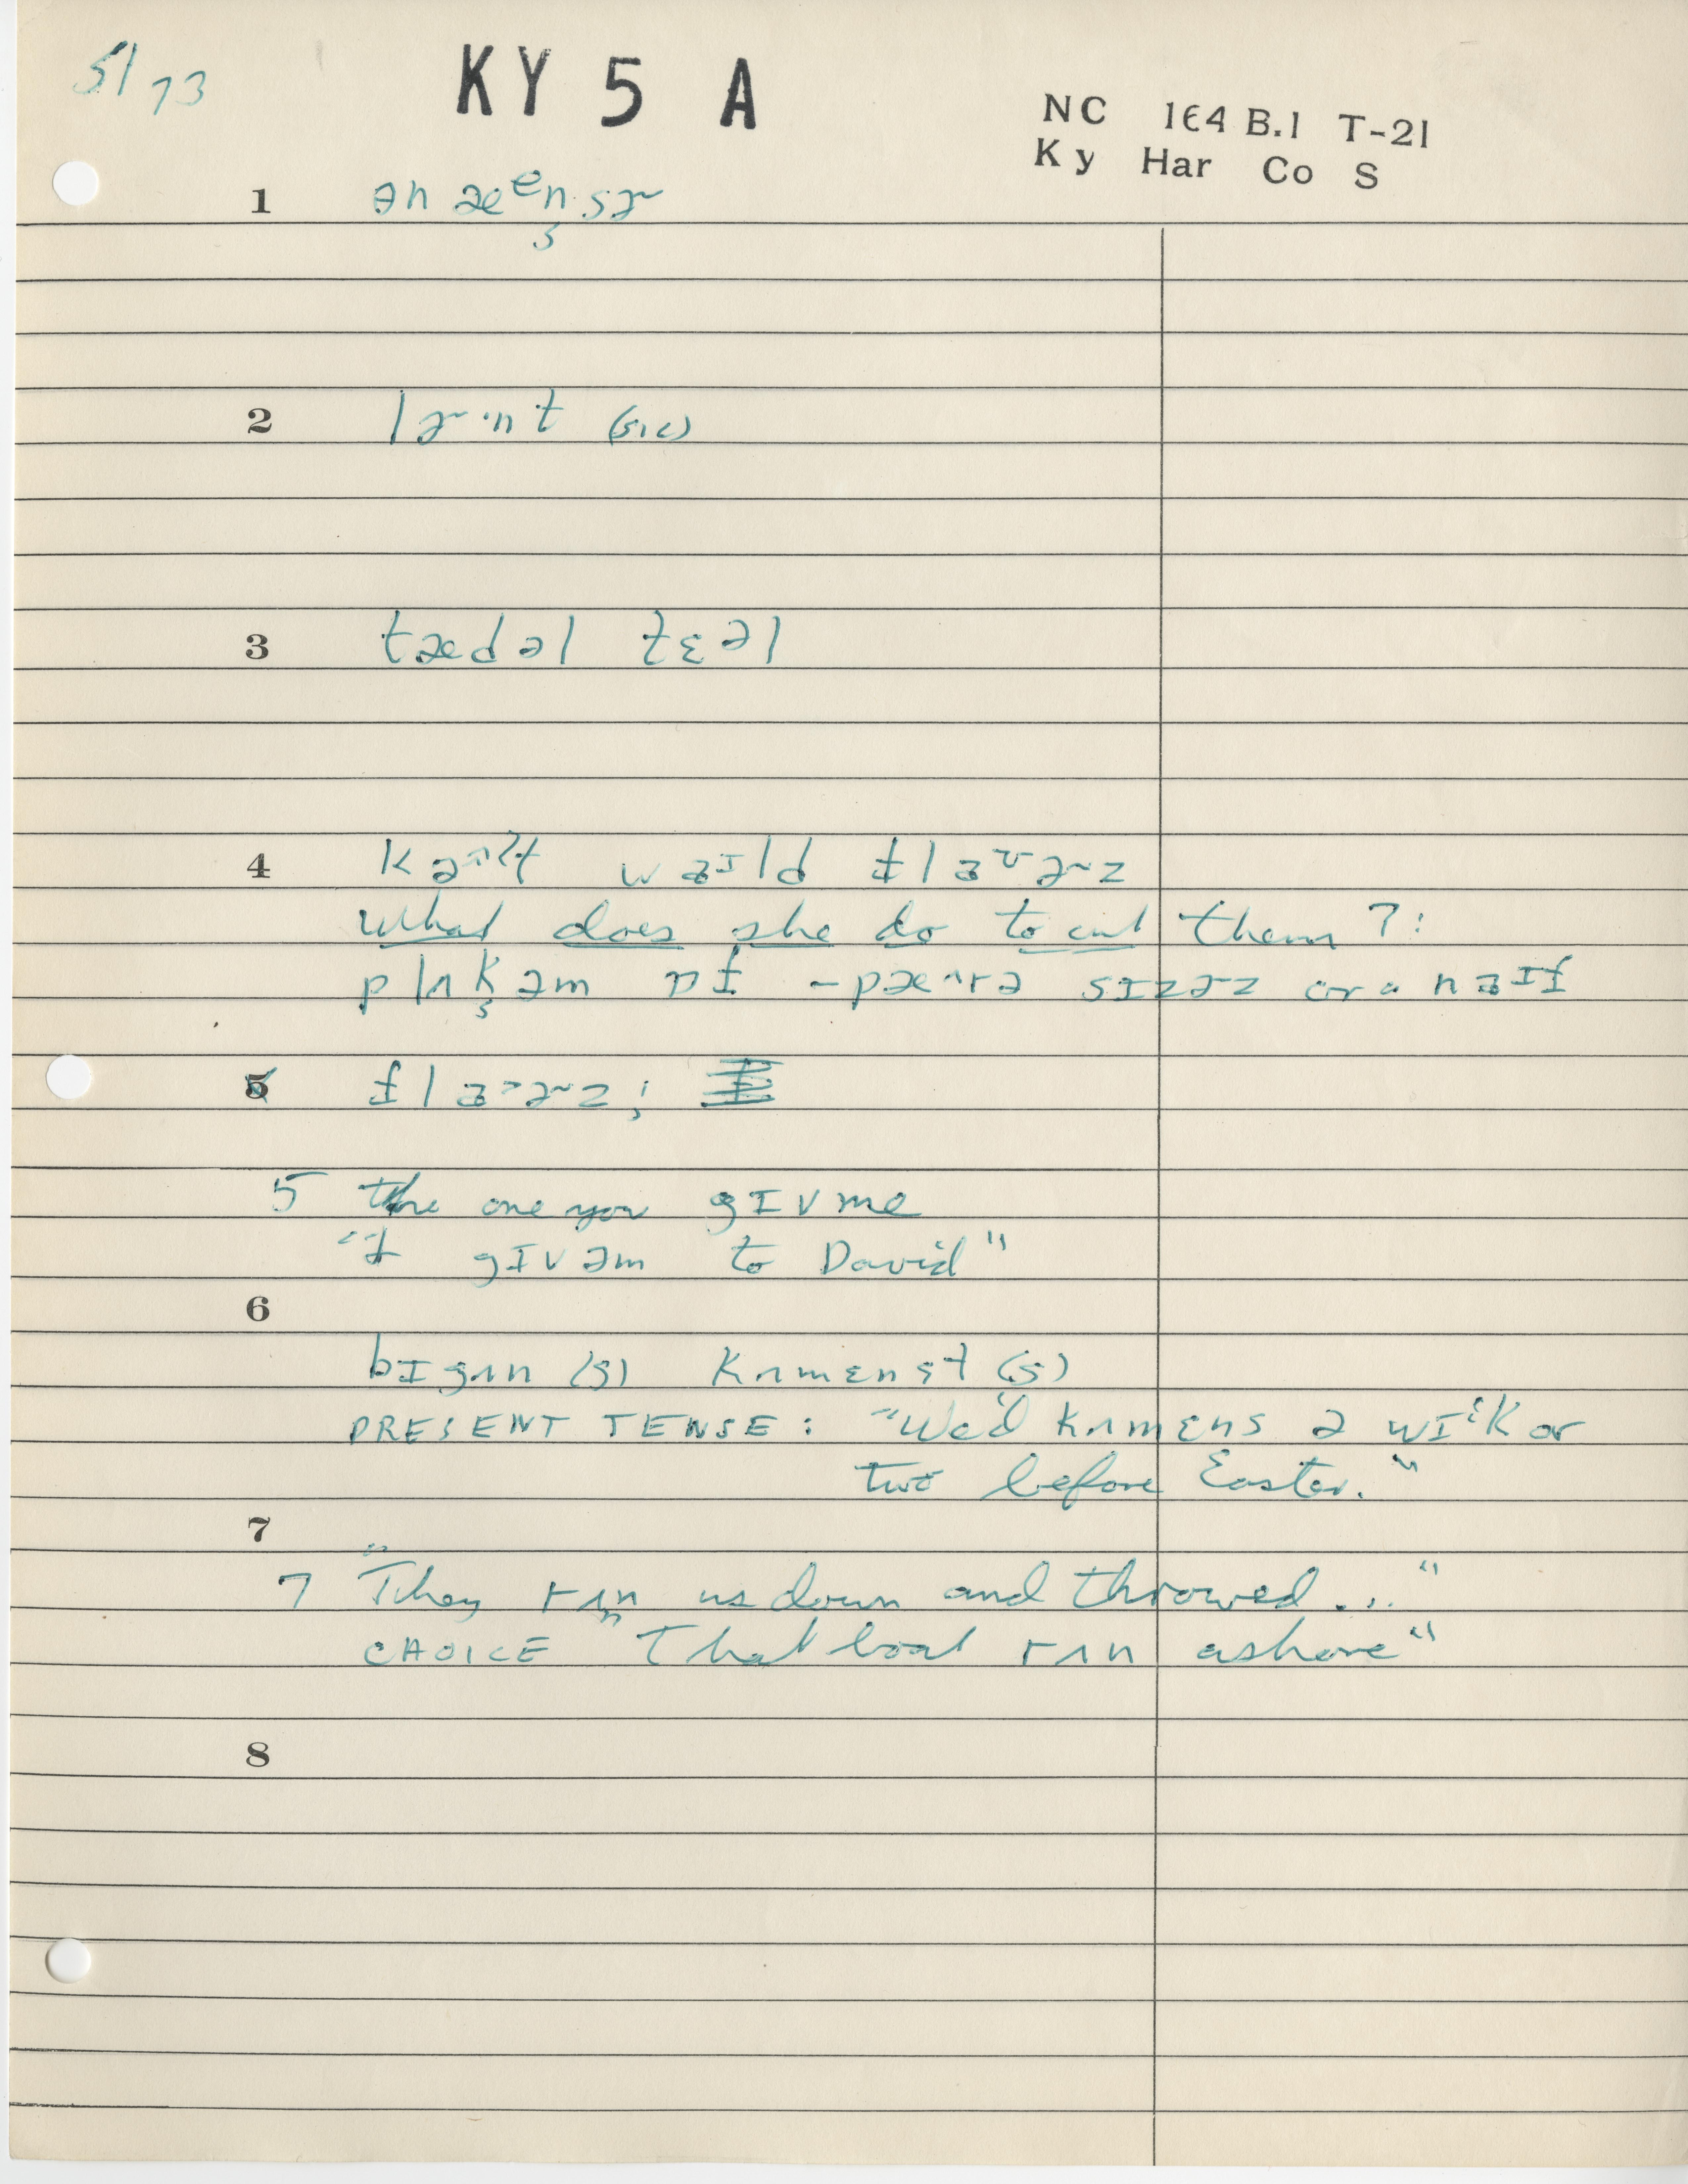 5/73
KY 5 A
NC 164 B.1 T-21
Ky Har Co S
1 ən æᵉn̬sɚ
2 lɚ·nt (sic)
3 tædəl tɛəl
4 waɪld
What does she do to cut them ?:
plʌk̬əm ɒf -pæ^rə sɪzɚz or a naɪf
5
5 the one you gɪv me
"I gɪv əm to David"
6
bɪgʌn (s) kʌmɛnst (s)
PRESENT TENSE: "We'd kʌmɛns ə wɪik or
two before Easter."
7
7 "They rʌn us down and throwed..."
CHOICE "That boat rʌn ashore"
8